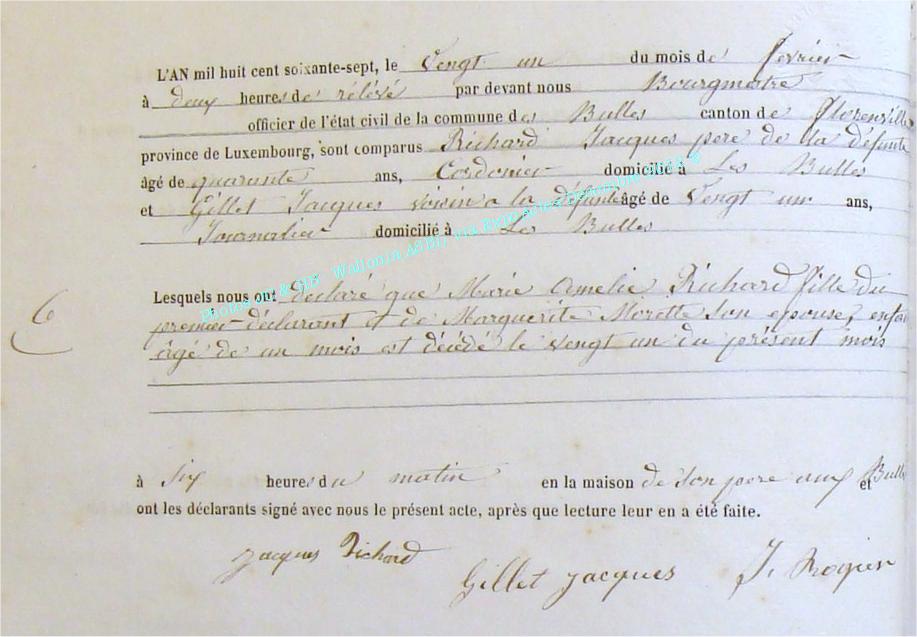 L'AN mil huit cent soixante-sept, le Vengt un du mois de fevrier
à deux heures de rélévé par devant nous Bourgmestre
officier de l'état civil de la commune des Bulles canton de Florenville
province de Luxembourg, sont comparus Richard Jacques pere de la défunte
âgé de quarante ans, Cordonier domicilié à Les Bulles
et Gillet Jacques voisin a la défunte âgé de Vengt un ans,
Journalier domicilié à Les Bulles
Lesquels nous ont déclaré que Marie Amelie Richard fille du
premier déclarant et de Marguerite Morette son epouse, enfan
âgé de un mois est décédé le vengt un du présent mois
6
à six heures du matin en la maison de son pere aux Bulle et
ont les déclarants signé avec nous le présent acte, après que lecture leur en a été faite.
Jacques Richard
Gillet Jacques J. Rogier